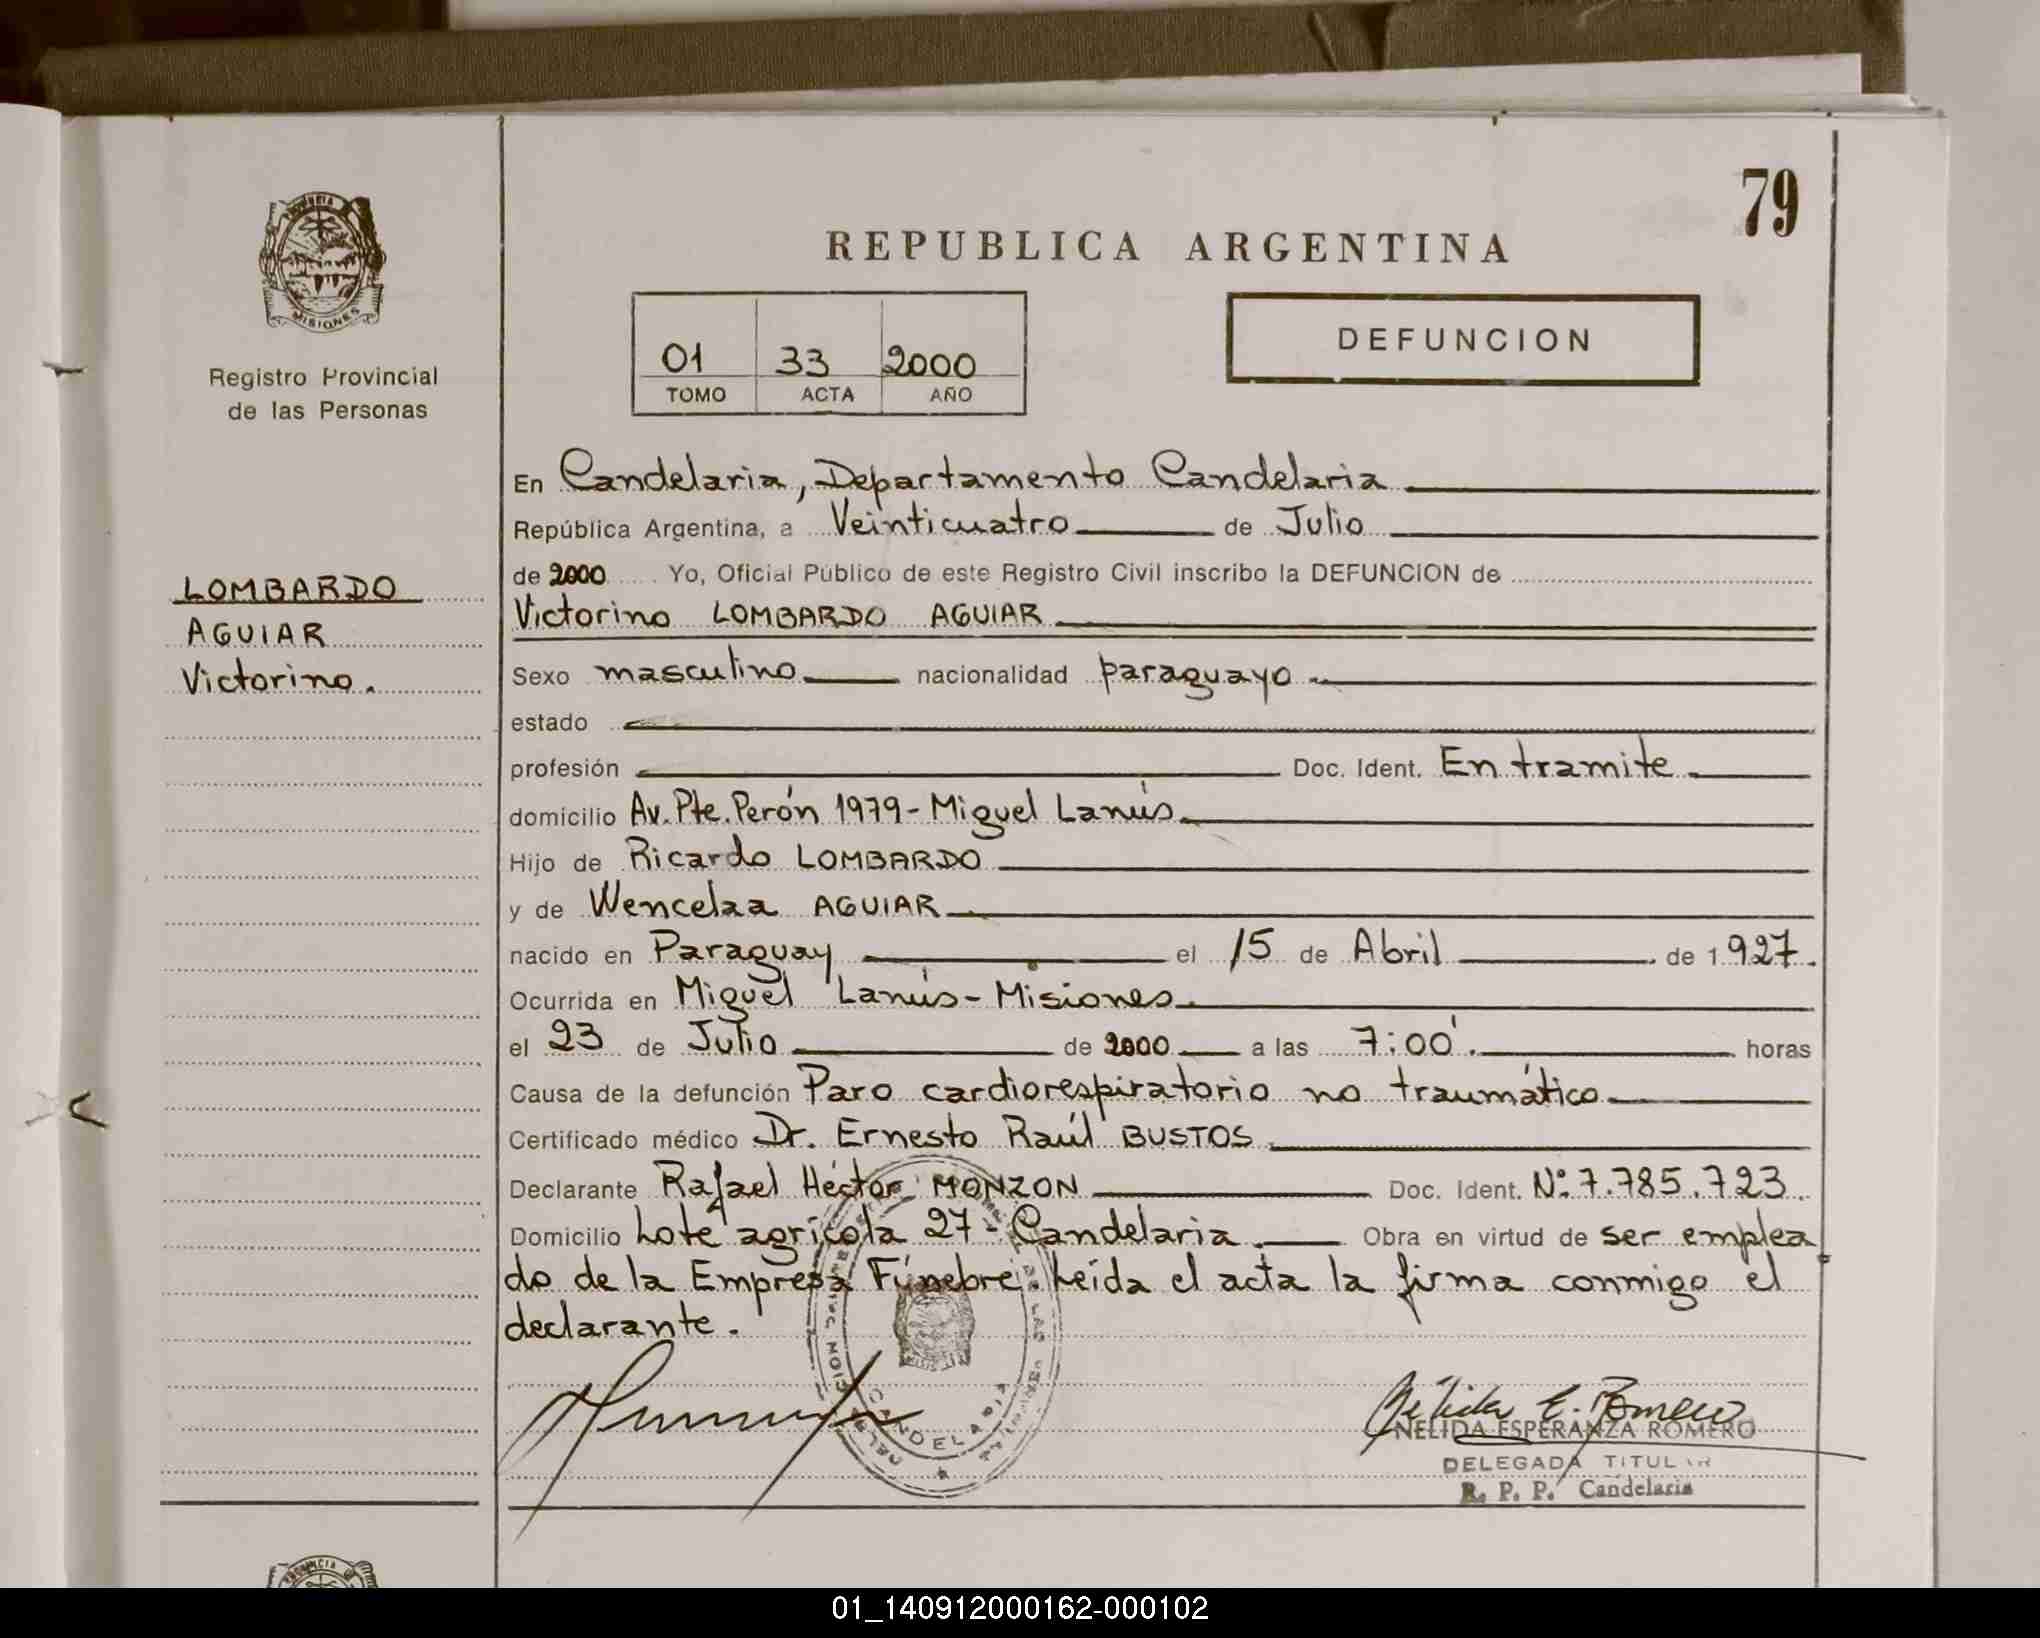 79
REPUBLICA ARGENTINA
PROVINCIA
MISIONES
Registro Provincial
de las Personas
01 33 2000
TOMO ACTA AÑO
DEFUNCION
LOMBARDO
AGUIAR
Victorino.
En Candelaria, Departamento Candelaria
República Argentina, a Veinticuatro de Julio
de 2000 Yo, Oficial Público de este Registro Civil inscribo la DEFUNCION de
Victorino LOMBARDO AGUIAR
Sexo masculino nacionalidad paraguayo
estado
profesión Doc. Ident. En tramite
domicilio Av. Pte. Perón 1979 - Miguel Lanús
Hijo de Ricardo LOMBARDO
y de Wencelaa AGUIAR
nacido en Paraguay el 15 de Abril de 1927.
Ocurrida en Miguel Lanús - Misiones
el 23 de Julio de 2000 a las 7:00'. horas
Causa de la defunción Paro cardiorespiratorio no traumático
Certificado médico Dr. Ernesto Raúl BUSTOS
Declarante Rafael Héctor MONZON Doc. Ident. Nº 7.785.723.
Domicilio Lote agrícola 27 - Candelaria. Obra en virtud de ser emplea
do de la Empresa Fúnebre. Leída el acta la firma conmigo el
declarante.
CANDELARIA
Nélida E. Romero
NELIDA ESPERANZA ROMERO
DELEGADA TITULAR
R. P. P. Candelaria
PROVINCIA
01_140912000162-000102